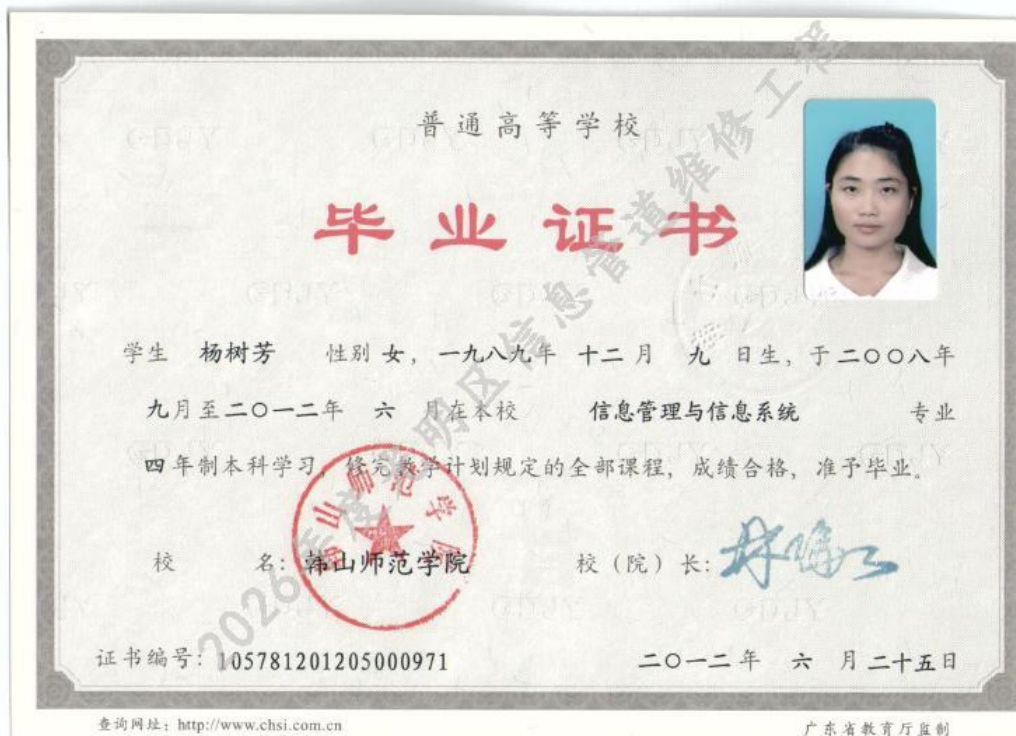 普通高等学校
毕业证书
学生 杨树芳 性别 女，一九八九年 十二月 九 日生，于二〇〇八年
九月至二〇一二年 六 月在本校 信息管理与信息系统 专业
四年制本科学习，修完教学计划规定的全部课程，成绩合格，准予毕业。
校 名：韩山师范学院
韩山师范学院
校（院）长：
证书编号：105781201205000971
二〇一二年 六 月二十五日
查询网址：http://www.chsi.com.cn
广东省教育厅监制
2026年度光明区信息管道维修工程